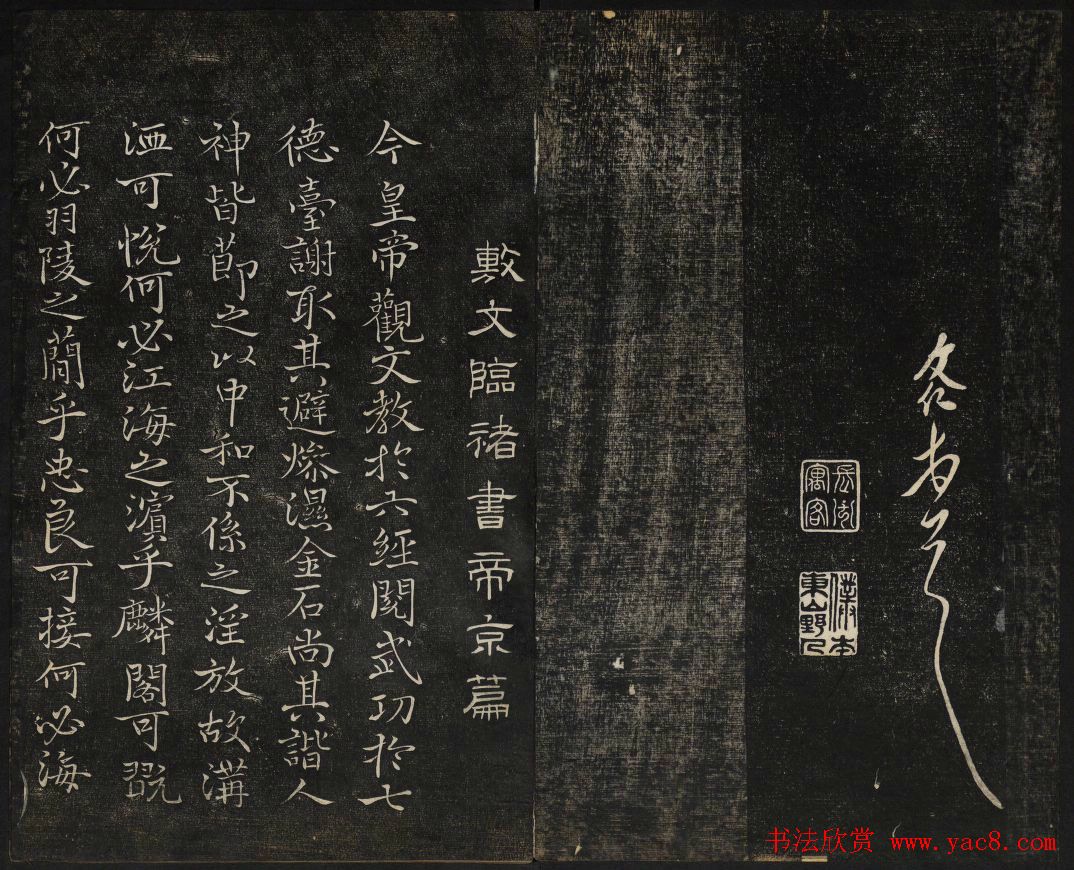 敷文臨褚書帝京篇
今皇帝觀文教於六經閱武功於七
德臺謝取其避燥濕金石尚其諧人
神皆節之以中和不係之淫放故溝
洫可悅何必江海之濵乎麟閣可翫
何必羽陵之蕳乎忠良可接何必海
书法欣赏 www.yac8.com